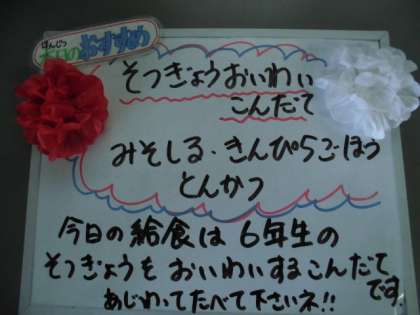 ほんじつ
本日のおすすめ
そつぎょうおいわい
こんだて
みそしる・きんぴらごぼう
とんかつ
今日の給食は6年生の
そつぎょうをおいわいするこんだて
です
あじわってたべて下さいネ!!